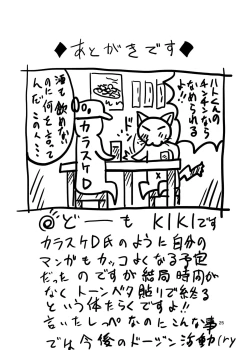 ◆あとがきです◆
ハトくんの
チンチンなら
なめられる
よ!!
酒も飲めない
のに何を言って
んだこの人…
カラスケD
ド
@どーも KIKIです
カラスケD氏のように自分の
マンガもカッコよくなる予定
だったのですが結局時間が
なくトーンベタ貼りで終る
という体たらくですよ!!
言いたしっぺなのにこんな事
では今後のドージン活動(ry